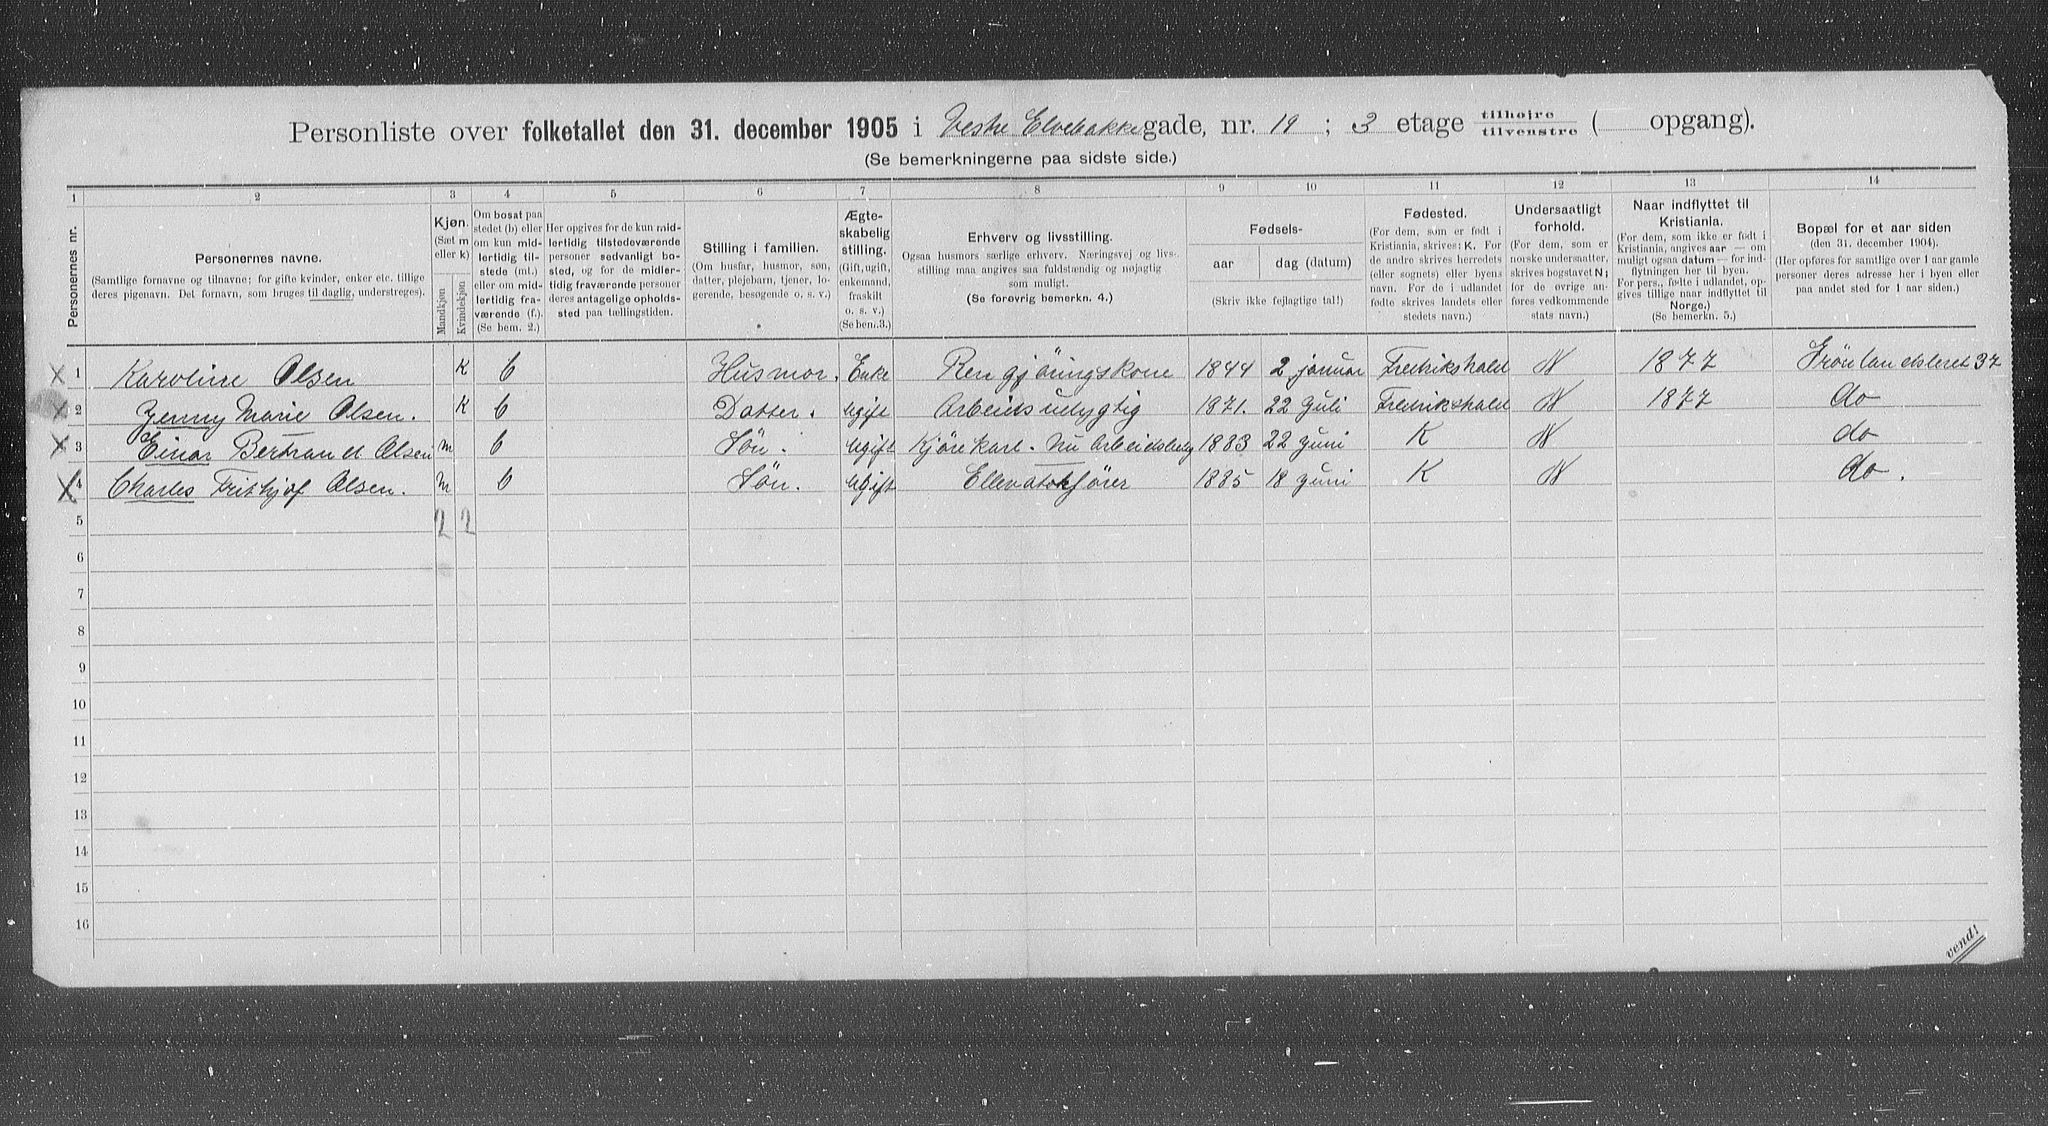 Personliste over folketallet den 31. december 1905 i Vestre Elvebakkegade, nr. 19 ; 3 etage tilhøjre tilvenstre ( opgang).
(Se bemerkningerne paa sidste side.)
1 2 3 4 5 6 7 8 9 10 11 12 13 14
Personernes nr.
Personernes navne.
(Samtlige fornavne og tilnavne; for gifte kvinder, enker etc. tillige
deres pigenavn. Det fornavn, som bruges til daglig, understreges).
Kjøn.
(Sæt m
eller k)
Mandkjøn
Kvindekjøn
Om bosat paa
stedet (b) eller
om kun mid-
lertidig til-
stede (mt.)
eller om mid-
lertidig fra-
værende (f.).
(Se bem. 2.)
Her opgives for de kun mid-
lertidig tilstedeværende
personer sedvanligt bo-
sted, og for de midler-
tidig fraværende personer
deres antagelige opholds-
sted paa tællingstiden.
Stilling i familien.
(Om husfar, husmor, søn,
datter, plejebarn, tjener, lo-
gerende, besøgende o. s. v.)
Ægte-
skabelig
stilling.
(Gift, ugift,
enkemand,
fraskilt
o. s. v.)
(Se bem. 3.)
Erhverv og livsstilling.
Ogsaa husmors særlige erhverv. Næringsvej og livs-
stilling maa angives saa fuldstændig og nøjagtig
som muligt.
(Se forøvrig bemerkn. 4.)
Fødsels-
aar dag (datum)
(Skriv ikke fejlagtige tal!)
Fødested.
(For dem, som er født i
Kristiania, skrives: K. For
de andre skrives herredets
(eller sognets) eller byens
navn. For de i udlandet
fødte skrives landets eller
stedets navn.)
Undersaatligt
forhold.
(For dem, som er
norske undersaatter,
skrives bogstavet N;
for de øvrige an-
føres vedkommende
stats navn.)
Naar indflyttet til
Kristiania.
(For dem, som ikke er født i
Kristiania, angives aar — om
muligt ogsaa datum — for ind-
flytningen her til byen.
For pers., fødte i udlandet, op-
gives tillige naar indflyttet til
Norge.)
(Se bemerkn. 5.)
Bopæl for et aar siden
(den 31. december 1904).
(Her opføres for samtlige over 1 aar gamle
personer deres adresse her i byen eller
paa andet sted for 1 aar siden.)
X 1 Karoline Olsen K b Husmor. Enke Rengjöringskone 1844 2 januar Fredrikshald N 1877 Grönlandsleret 37
X 2 Jenny Marie Olsen. K b Datter. Ugift Arbeidsudygtig 1871. 22 Juli Fredrikshald N 1877 do
X 3 Einar Bertrand Olsen m b Sön. Ugift Kjörekarl. Nu Arbeidsledig 1883 22 Juni K N do
X 4 Charles Frithjof Olsen. m b Sön. Ugift Ellevatorförer 1885 18 Juni K N do.
5 2 2
6
7
8
9
10
11
12
13
14
15
16
vend!